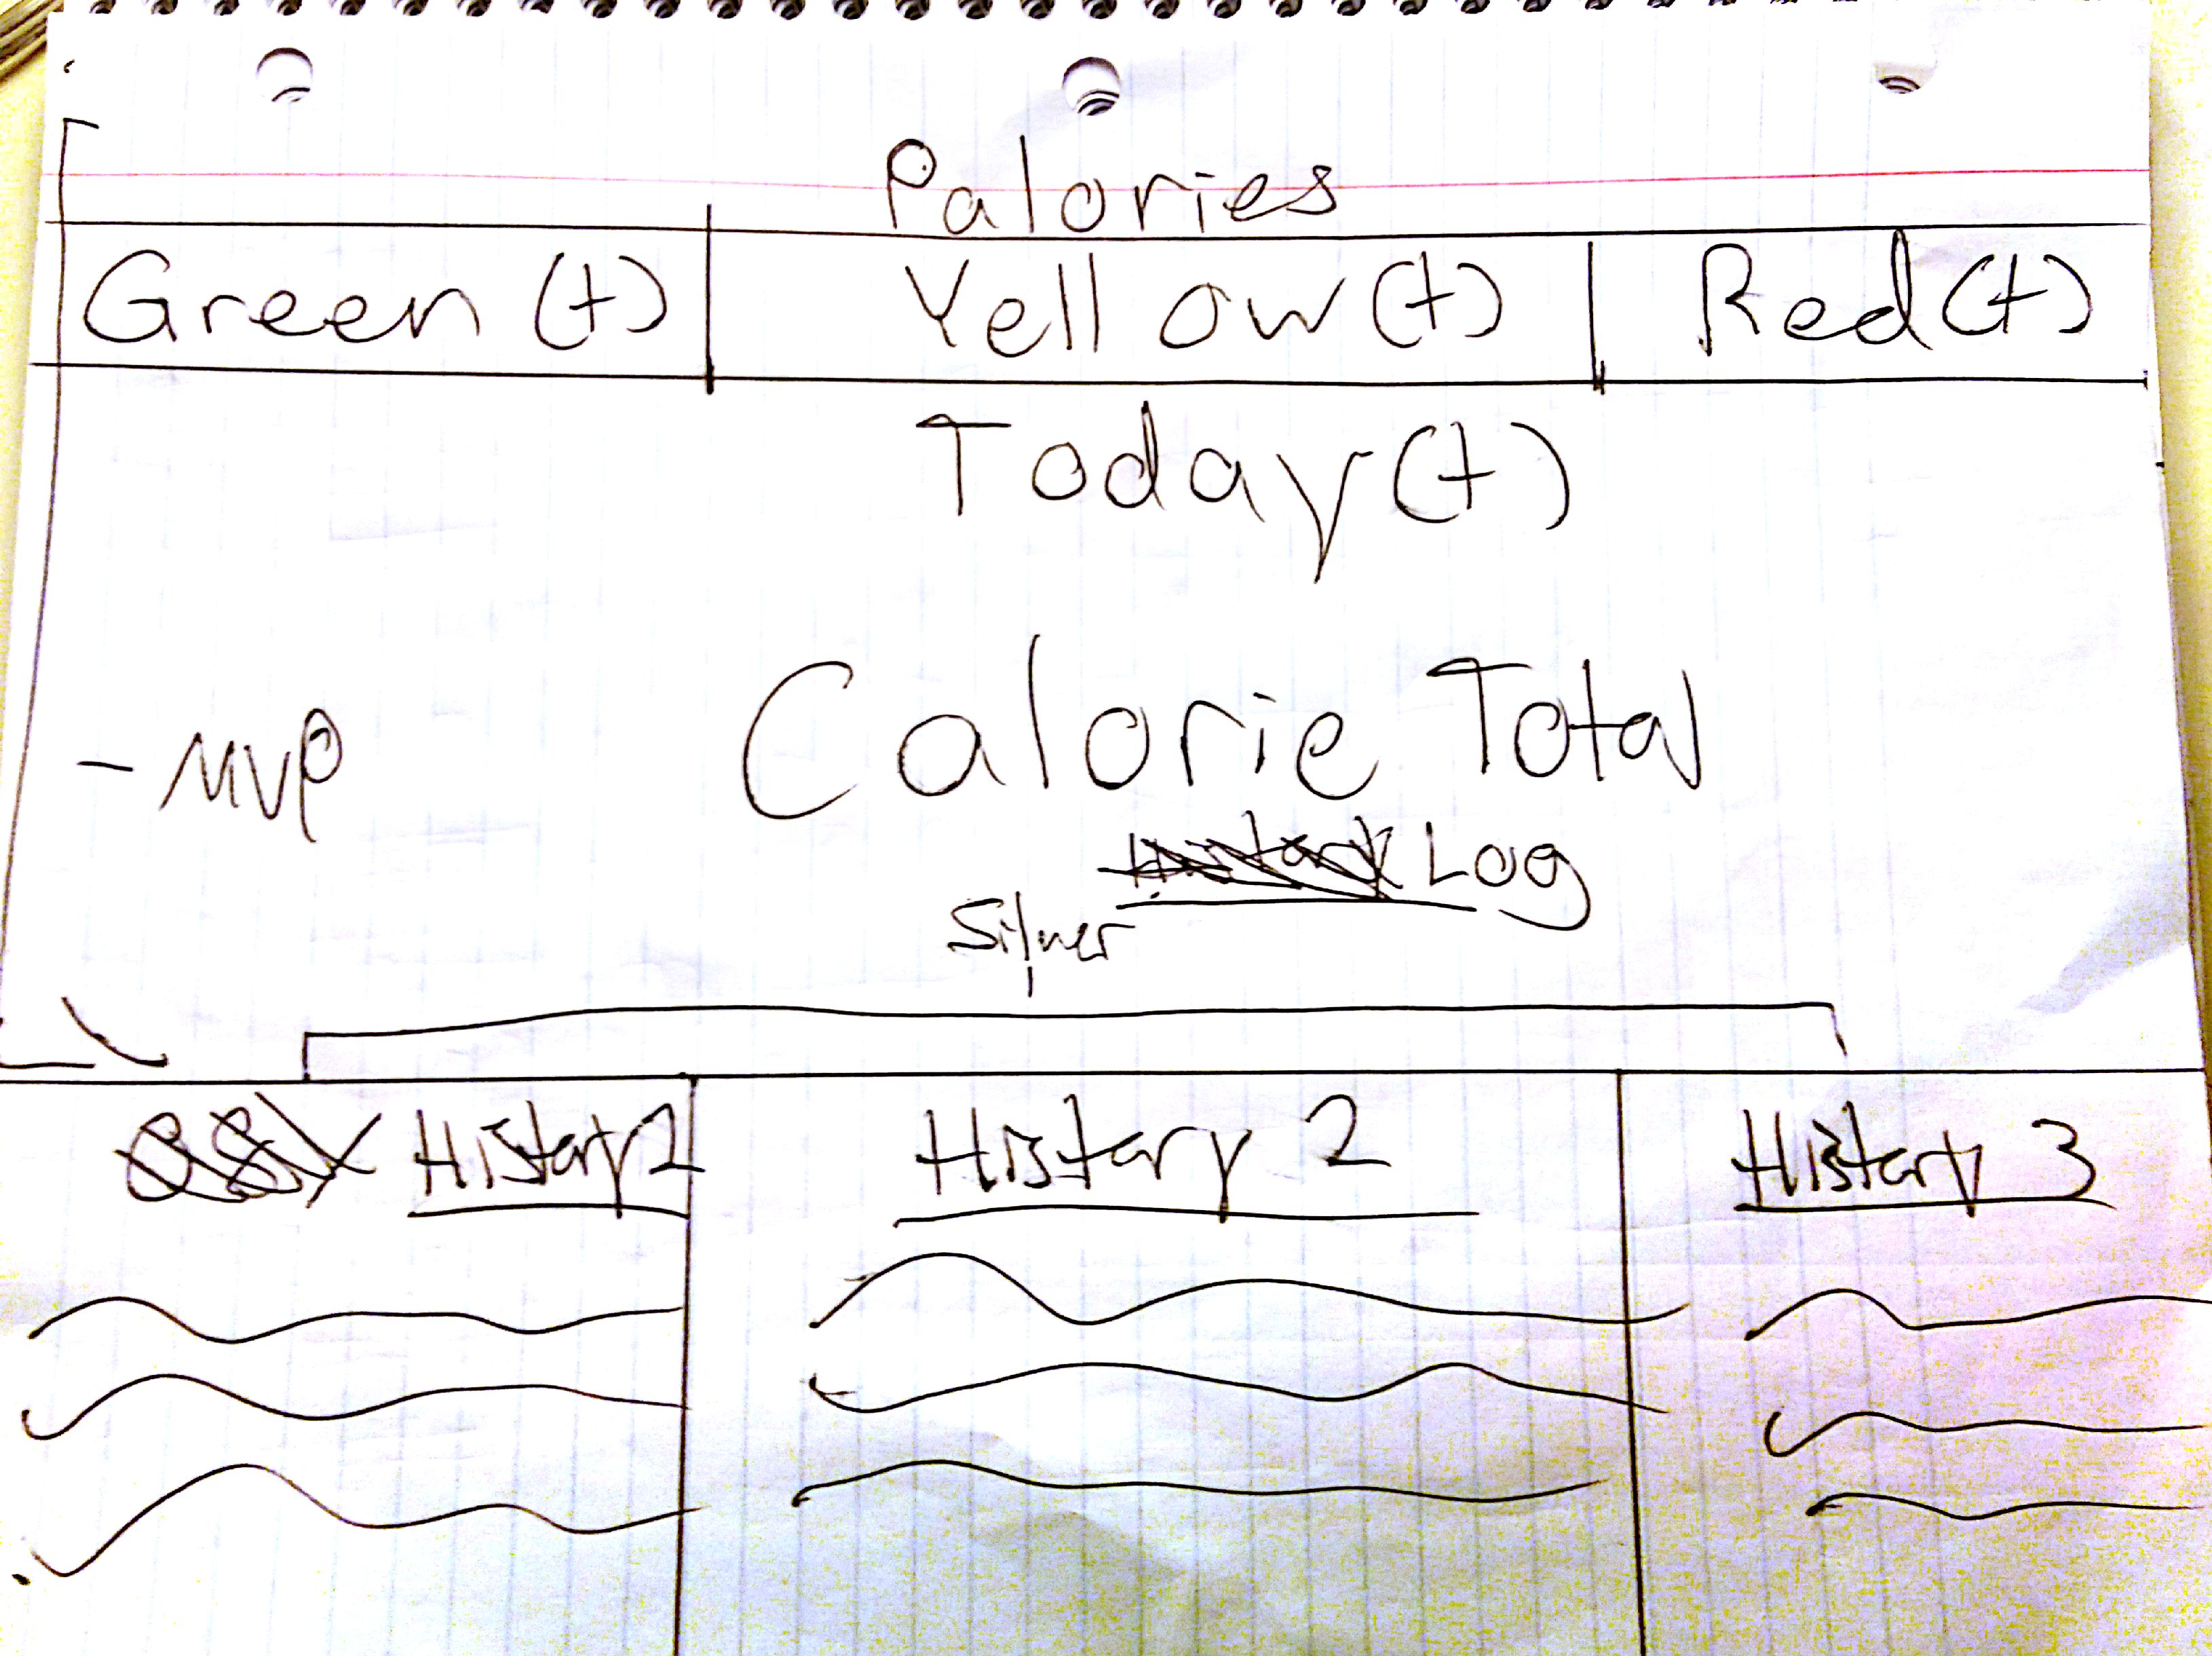 Palories
Green (t) Yellow (t) Red (t)
Today (t)
- MVP Calorie Total
Log
Silver
History 1 History 2 History 3